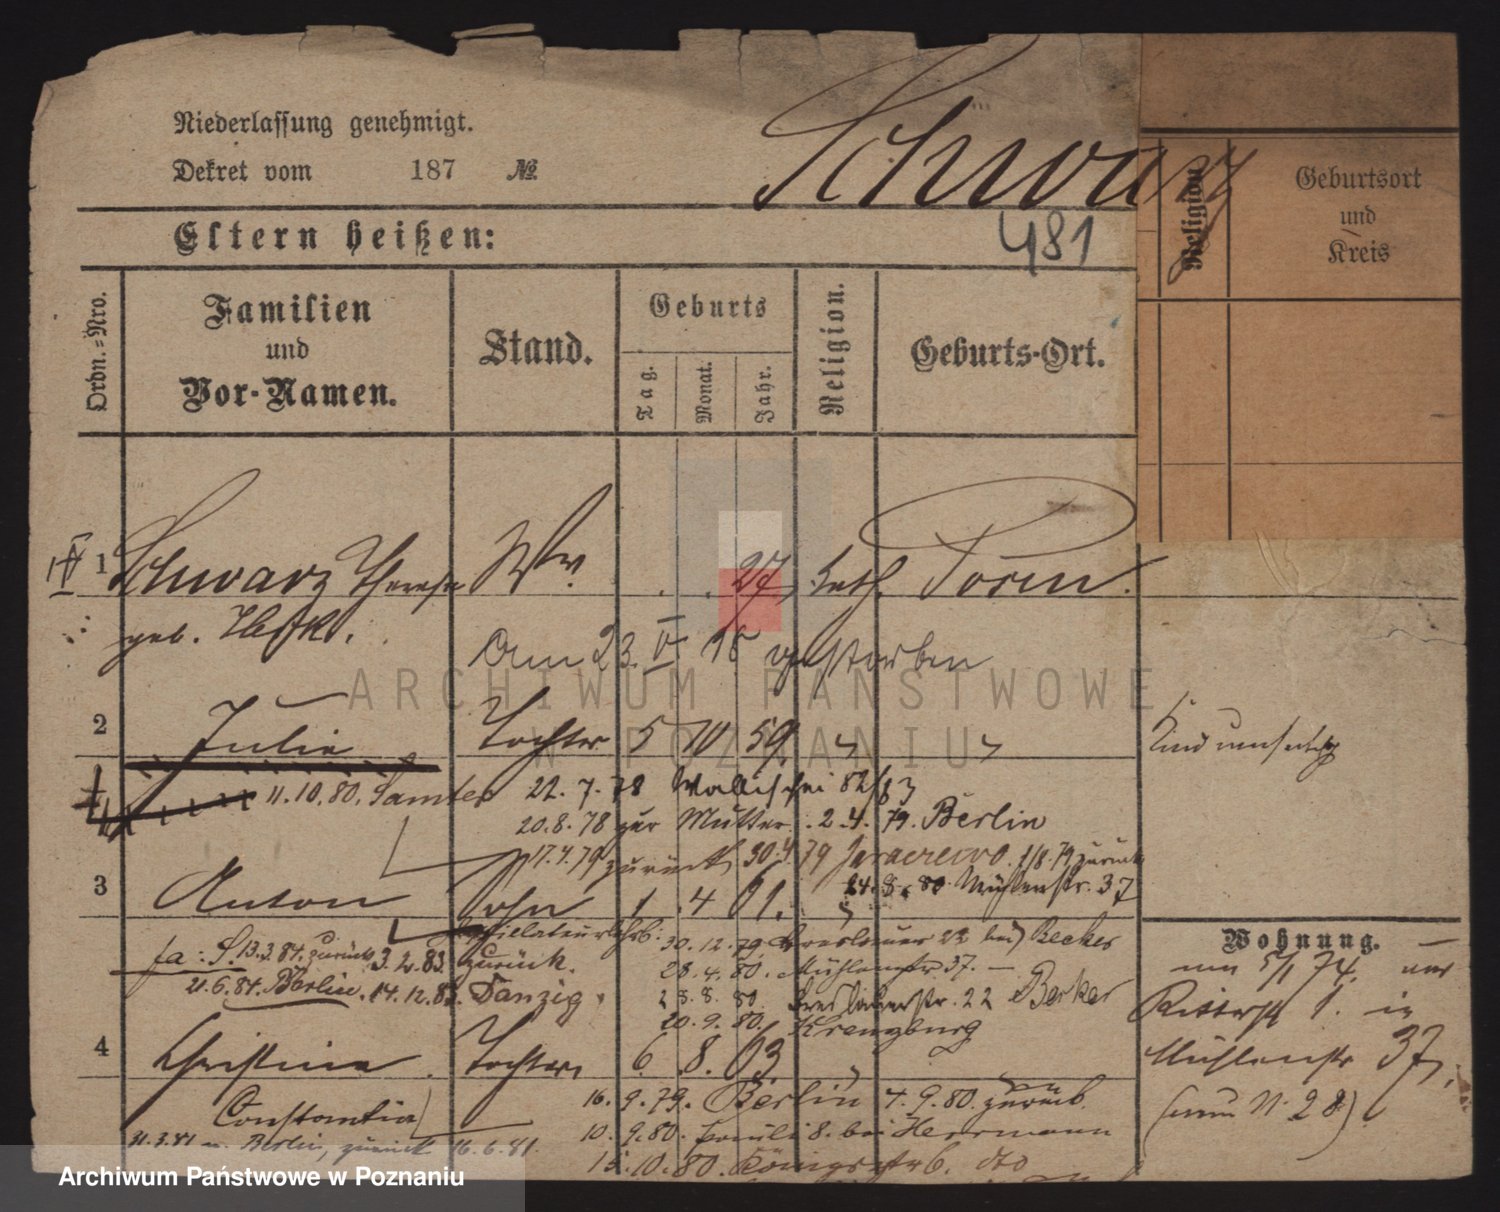 Niederlassung genehmigt.
Dekret vom 187 №
Schwarz
Eltern heißen:
481
Religion
Geburtsort
und
Kreis
Ordn.=Nro.
Familien
und
Vor-Namen.
Stand.
Geburts
Tag.
Monat.
Jahr.
Religion.
Geburts-Ort.
1 Schwarz Therese Ww. 27 kath. Posen
geb.
Am 23. IV 18 gestorben
ARCHIWUM PAŃSTWOWE
W POZNANIU
2 Julie Tochter 5 10 59
11.10.80. Samter 22. 7. 78 Wallischei 82/83
20.8.78 zur Mutter. 2.4. 79. Berlin
17.4.79 zurück 30.4.79 Jaraczewo. 1/8.79 zurück
24.8.80. Mühlenstr. 37
3 Anton Sohn 1. 4 61.
30.12.79 Breslauer 22 bei Becker
13.3.84. zurück 3.2.83. zurück. 28.4.80. Mühlenstr 37.
21.6.84. Berlin. 14.12.83. Danzig. 28.8.80 Breslauerstr. 22 Becker
20.9.80. Kreuzburg
4 Christine Tochter 6. 8. 63
Constantia
16. 9. 79. Berlin 4. 9. 80. zurück
10. 9. 80. Pauli 8. bei Herrmann
31.3.81 n. Berlin, zurück 16.6.81.
15.10.80. Königsstr 6. dto
Wohnung.
um 5/1 74. von
Ritterst 1. in
Mühlenstr 37,
(nun N. 28)
Archiwum Państwowe w Poznaniu